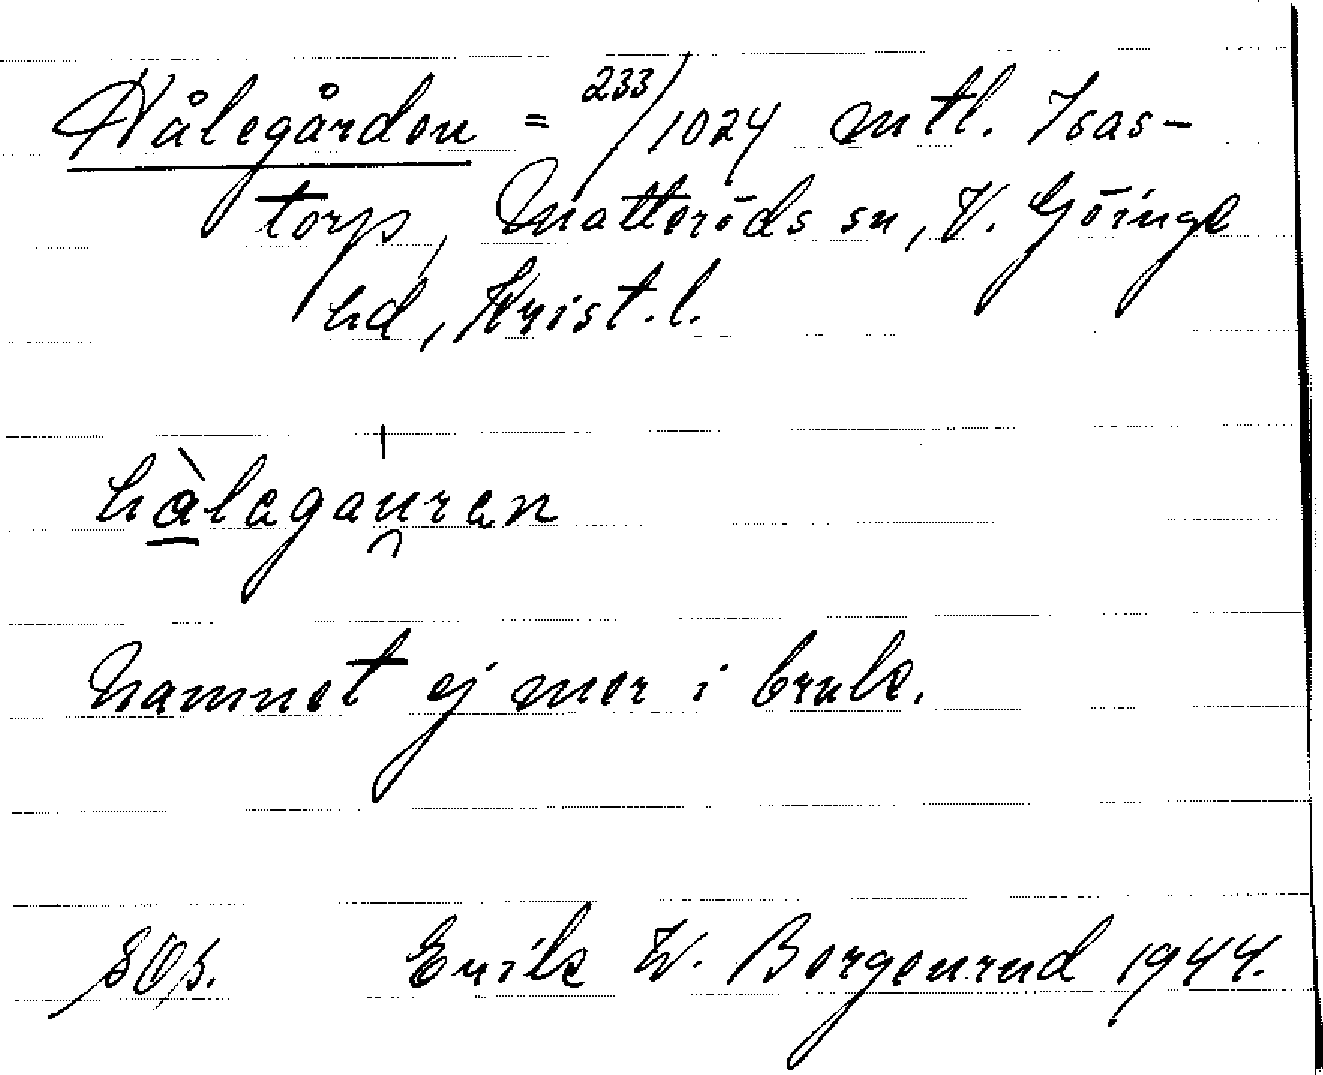 Hålegården = 233/1024 mtl. Isas-
torp, Matteröds sn, V. Göinge
hd, Krist. l.
hàlagau̯ran
Namnet ej mer i bruk.
Erik W. Borgenrud 1944.